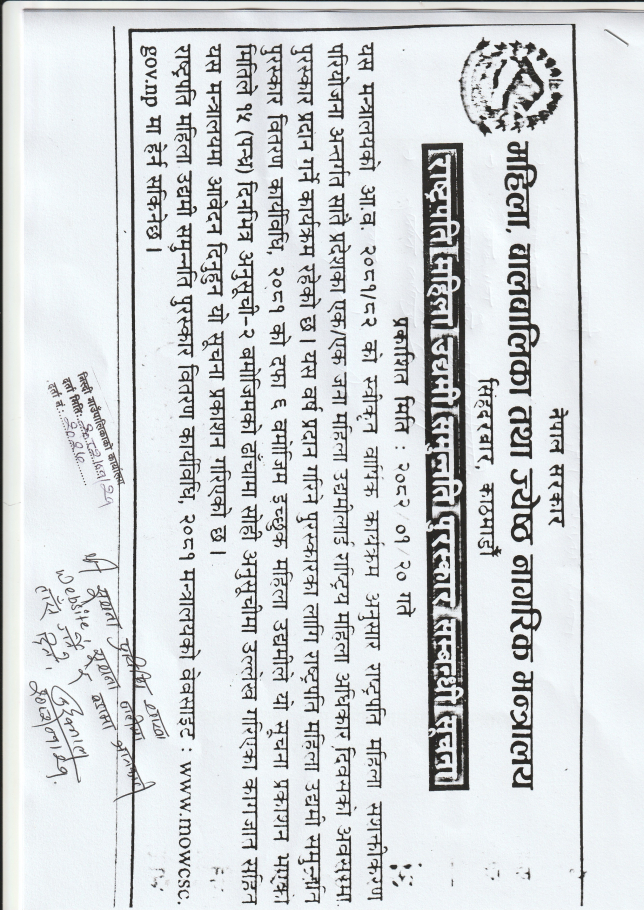 नेपाल सरकार
महिला, बालबालिका तथा ज्येष्ठ नागरिक मन्त्रालय
सिंहदरबार, काठमाडौं
राष्ट्रपति महिला उद्यमी समुन्नति पुरस्कार सम्बन्धी सूचना
प्रकाशित मिति : २०८२/०१/२० गते
यस मन्त्रालयको आ.व. २०८१/८२ को स्वीकृत वार्षिक कार्यक्रम अनुसार राष्ट्रपति महिला सशक्तीकरण
परियोजना अन्तर्गत सातै प्रदेशका एक/एक जना महिला उद्यमीलाई राष्ट्रिय महिला अधिकार दिवसको अवसरमा
पुरस्कार प्रदान गर्ने कार्यक्रम रहेको छ। यस वर्ष प्रदान गरिने पुरस्कारका लागि राष्ट्रपति महिला उद्यमी समुन्नति
पुरस्कार वितरण कार्यविधि, २०८१ को दफा ६ बमोजिम इच्छुक महिला उद्यमीले यो सूचना प्रकाशन भएको
मितिले १५ (पन्ध्र) दिनभित्र अनुसूची-२ बमोजिमको ढाँचामा सोही अनुसूचीमा उल्लेख गरिएका कागजात सहित
यस मन्त्रालयमा आवेदन दिनुहुन यो सूचना प्रकाशन गरिएको छ।
राष्ट्रपति महिला उद्यमी समुन्नति पुरस्कार वितरण कार्यविधि, २०८१ मन्त्रालयको वेबसाइट : www.mowcsc.
gov.np मा हेर्न सकिनेछ।
गाउँपालिकाको कार्यालय
दर्ता मिति:
दर्ता नं.:
सूचना
Website